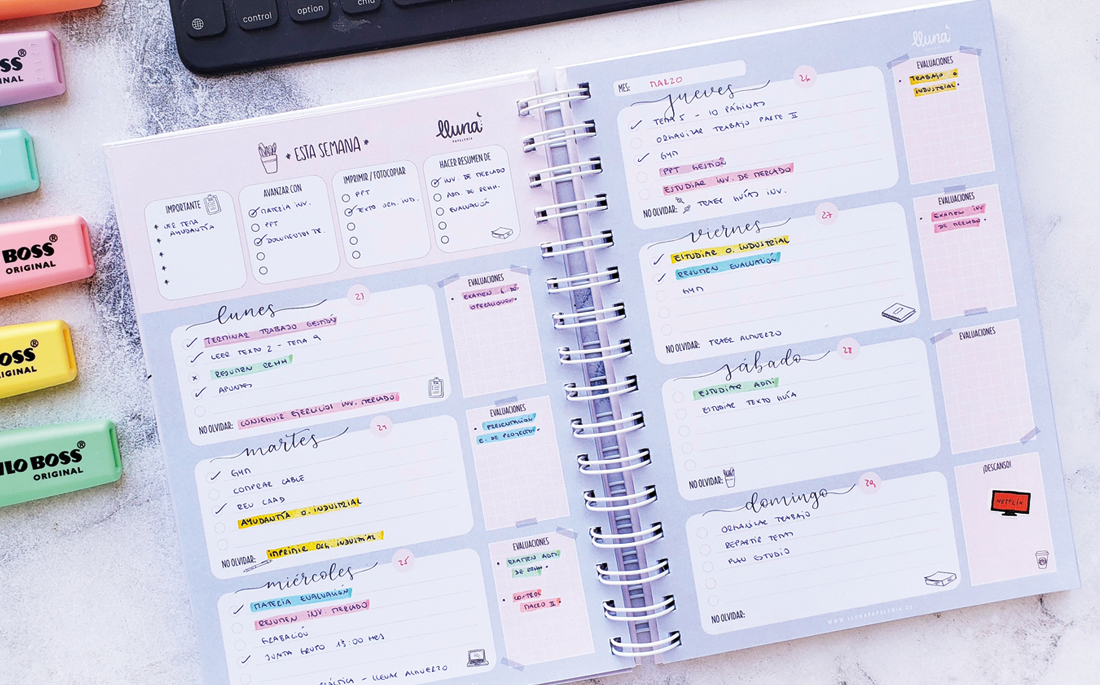 control
option
cmd
BOSS
ORIGINAL
BOSS
ORIGINAL
BOSS
ORIGINAL
BOSS
ORIGINAL
lluna
PAPELERIA
• ESTA SEMANA •
IMPORTANTE
LEER TEMA
AYUDANTÍA
AVANZAR CON
MATERIA INV.
PPT
DOCUMENTOS TR.
IMPRIMIR / FOTOCOPIAR
PPT
TEXTO ORG. IND.
HACER RESUMEN DE
INV. DE MERCADO
ADM. DE RRHH.
EVALUACIÓN
lunes
23
TERMINAR TRABAJO GESTIÓN
LEER TEXTO 2 - TEMA 9
RESUMEN RRHH
APUNTES
NO OLVIDAR: CONSEGUIR EJERCICIOS INV. MERCADO
EVALUACIONES
EXAMEN G. DE
OPERACIONES
martes
24
GYM
COMPRAR CABLE
REU CAAD
AYUDANTÍA O. INDUSTRIAL
NO OLVIDAR: IMPRIMIR ORG. INDUSTRIAL
EVALUACIONES
PRESENTACIÓN
E. DE PROYECTOS
miércoles
25
MATERIA EVALUACIÓN
RESUMEN INV. MERCADO
GRABACIÓN
JUNTA GRUPO 13:00 HRS
PRÁCTICA - LLEVAR ALMUERZO
EVALUACIONES
EXAMEN ADM.
DE RRHH
CONTROL
MACRO II
lluna
MES: MARZO
jueves
26
TEMA 5 - 10 PÁGINAS
ORGANIZAR TRABAJO PARTE II
GYM
PPT GESTIÓN
ESTUDIAR INV. DE MERCADO
NO OLVIDAR: TRAER GUÍAS INV.
EVALUACIONES
TRABAJO O.
INDUSTRIAL
viernes
27
ESTUDIAR O. INDUSTRIAL
RESUMEN EVALUACIÓN
GYM
NO OLVIDAR: TRAER ALMUERZO
EVALUACIONES
EXAMEN INV.
DE MERCADO
sábado
28
ESTUDIAR ADM.
ESTUDIAR TEXTO GUÍA
NO OLVIDAR:
EVALUACIONES
domingo
29
ORGANIZAR TRABAJO
REPARTIR TEMAS
PLAN ESTUDIO
NO OLVIDAR:
¡DESCANSO!
NETFLIX
WWW.LLUNAPAPELERIA.CL